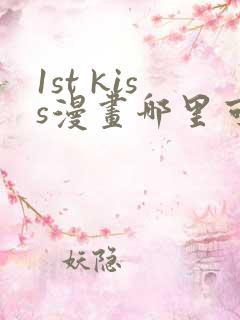 1st kis
s漫畫哪里可
妖隐